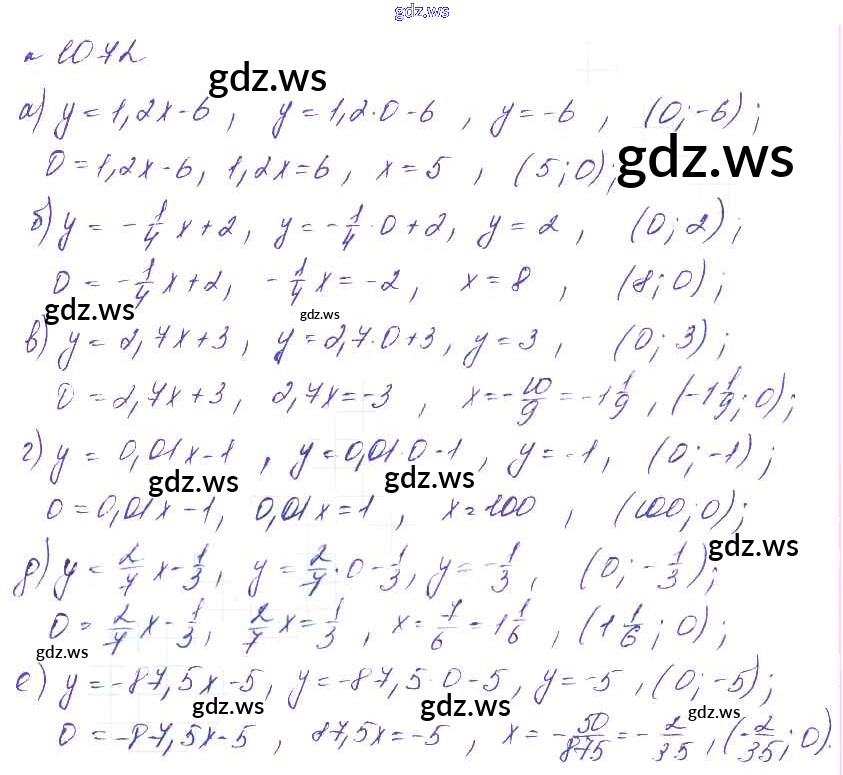 gdz.ws
n 1072
gdz.ws
а) y = 1,2x - 6, y = 1,2·0 - 6, y = -6, (0; -6);
gdz.ws
0 = 1,2x - 6, 1,2x = 6, x = 5, (5; 0);
б) y = -1/4 x + 2, y = -1/4·0 + 2, y = 2, (0; 2);
0 = -1/4 x + 2, -1/4 x = -2, x = 8, (8; 0);
gdz.ws
gdz.ws
в) y = 2,7x + 3, y = 2,7·0 + 3, y = 3, (0; 3);
0 = 2,7x + 3, 2,7x = -3, x = -10/9 = -1 1/9, (-1 1/9; 0);
г) y = 0,01x - 1, y = 0,01·0 - 1, y = -1, (0; -1);
gdz.ws gdz.ws
0 = 0,01x - 1, 0,01x = 1, x = 100, (100; 0);
gdz.ws
д) y = 2/7 x - 1/3, y = 2/7·0 - 1/3, y = -1/3, (0; -1/3);
0 = 2/7 x - 1/3, 2/7 x = 1/3, x = 7/6 = 1 1/6, (1 1/6; 0);
gdz.ws
е) y = -87,5x - 5, y = -87,5·0 - 5, y = -5, (0; -5);
gdz.ws gdz.ws gdz.ws
0 = -87,5x - 5, 87,5x = -5, x = -50/875 = -2/35, (-2/35; 0).
gdz.ws